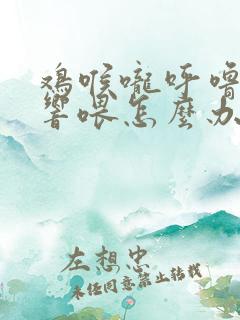 鸡喉咙呼噜
响喂怎麽办
左想忠
未经同意禁止转载